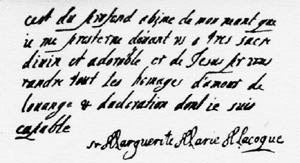 cest du profond abime de mon neant que
ie me prosterne devant vs o tres sacre
divin et adorable cr de Jesus pr vous
randre tout les homages d'amour de
louange & dadoration dont ie suis
capable
sr Marguerite Marie Alacoque